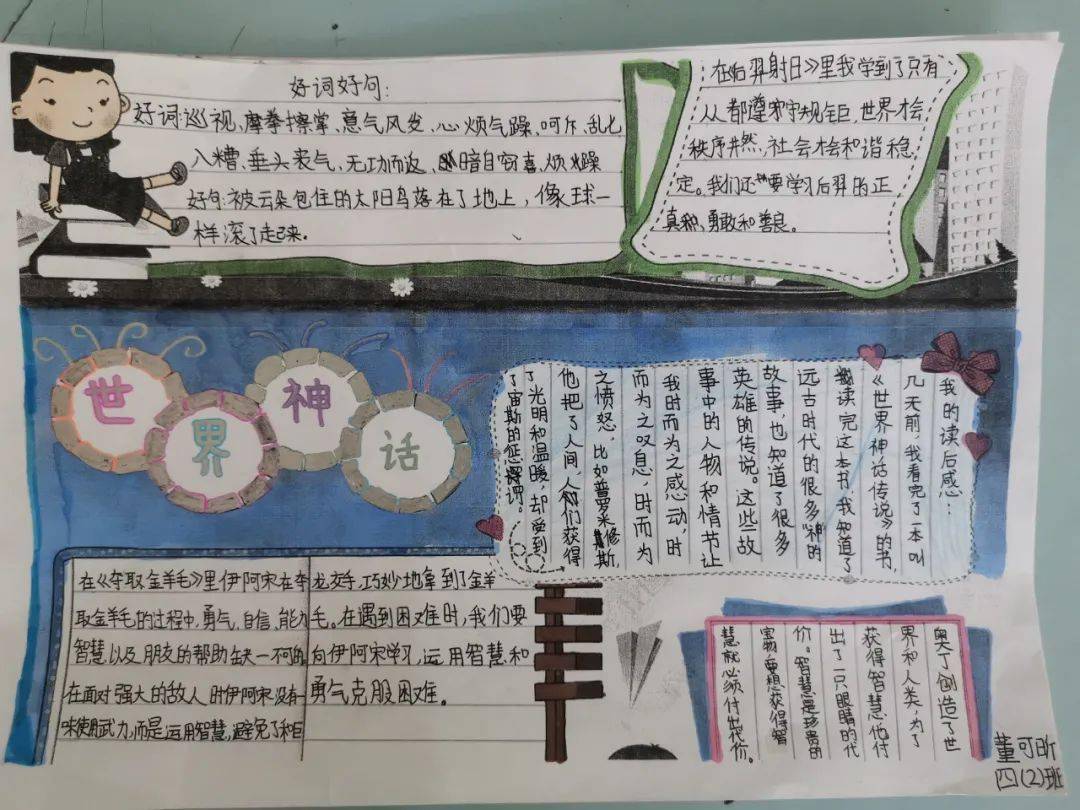 好词好句:
好词:巡视、摩拳擦掌、意气风发、心烦气躁、呵斥、乱七
八糟、垂头丧气、无功而返、暗自窃喜、烦躁
好句:被云朵包住的太阳鸟落在了地上,像球一
样滚了起来.
在《后羿射日》里我学到了只有
人人都遵守规矩,世界才会
秩序井然,社会才会和谐稳
定。我们还要学习后羿的正
直、勇敢和善良。
世界神话
我的读后感:
几天前,我看完了一本叫
《世界神话传说》的书,
读完这本书,我知道了
远古时代的很多神的
故事,也知道了很多
英雄的传说。这些故
事中的人物和情节让
我时而为之感动,时
而为之叹息,时而为
之愤怒,比如普罗米修斯,
他把了人间,人们获得
了光明和温暖,却受到
了宙斯的惩罚。
在《夺取金羊毛》里伊阿宋在夺
取金羊毛的过程中,勇气、自信、能力、
智慧以及朋友的帮助缺一不可
在面对强大的敌人时伊阿宋没有一
味使用武力,而是运用智慧,避免了和巨
龙交手,巧妙地拿到了金羊
毛。在遇到困难时,我们要
向伊阿宋学习,运用智慧和
勇气克服困难。
奥丁创造了世
界和人类,为了
获得智慧他付
出了一只眼睛的代
价。智慧是珍贵的
宝物,要想获得智
慧就必须付出代价。
董可昕
四(2)班